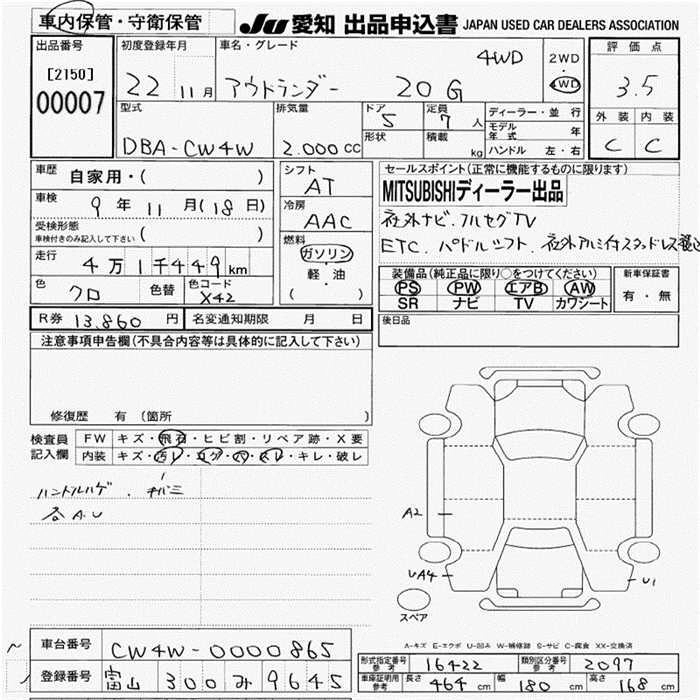 車内保管・守衛保管
JU 愛知 出品申込書 JAPAN USED CAR DEALERS ASSOCIATION
出品番号
[2150]
00007
初度登録年月
22 11月
車名・グレード
アウトランダー 20G 4WD
2WD
4WD
評価点
3.5
外装 内装
C C
型式
DBA-CW4W
排気量
2.000 cc
ドア
5
定員
7人
形状
積載
kg
ディーラー・並行
モデル年式 年
ハンドル 左・右
車歴
自家用・( )
車検
9年11月(18日)
受検形態
車検付きのみ記入して下さい ( )
走行
4万1千449km
色
クロ
色替
色コード
X42
シフト
AT
冷房
AAC
燃料
ガソリン
軽・油
( )
セールスポイント(正常に機能するものに限ります)
MITSUBISHIディーラー出品
社外ナビ.フルセグTV
ETC.パドルシフト.社外アルミ付スタッドレス
装備品(純正品に限り○をつけてください)
PS PW エアB AW
SR ナビ TV カワシート
新車保証書
有・無
R券 13,860円
名変通知期限 月 日
後日品
注意事項申告欄(不具合内容等は具体的に記入して下さい)
修復歴 有(箇所 )
検査員記入欄
FW キズ・飛石・ヒビ割・リペア跡・X要
内装 キズ・汚レ・コゲ・穴・スレ・キレ・破レ
ハンドルハゲ.
各A.U
A2
UA4
U1
スペア
A-キズ E-エクボ U-凹み W-補修跡 S-サビ C-腐食 XX-交換済
車台番号 CW4W-0000865
登録番号 富山 300 み 9645
形式指定番号 参考 16422
類別区分番号 参考 2097
車庫証明用 参考 長さ 464cm 幅 180cm 高さ 168cm